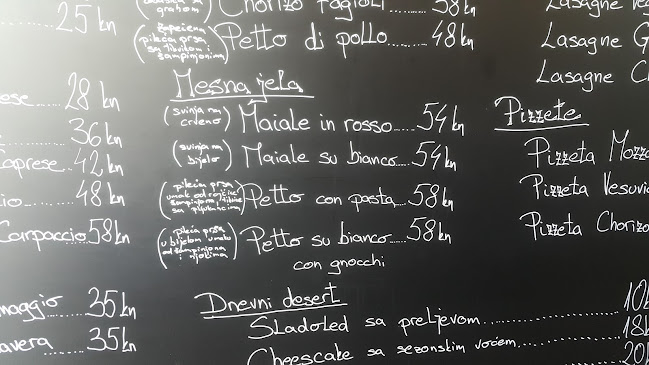 25 kn
grahom
Chorizo fagioli 38 kn
(zapečena
pileća prsa
sa tikvicom i
šampinjonima)
Petto di pollo 48 kn
Mesna jela
(svinja na
crveno)
Maiale in rosso 54 kn
(svinja na
bijelo)
Maiale su bianco 54 kn
(pileća prsa
sa pljukancima)
Petto con pasta 58 kn
(pileća prsa
u bijelom umaku
od šampinjona
i njokima)
Petto su bianco 58 kn
con gnocchi
Dnevni desert
Sladoled sa preljevom 10k
Cheescake sa sezonskim voćem 18k
20k
28 kn
36 kn
aprese 42 kn
io 48 kn
Carpaccio 58 kn
maggio 35 kn
avera 35 kn
Lasagne
Lasagne G
Lasagne C
Pizzete
Pizzeta Mozza
Pizzeta Vesuvi
Pizzeta Chorizo